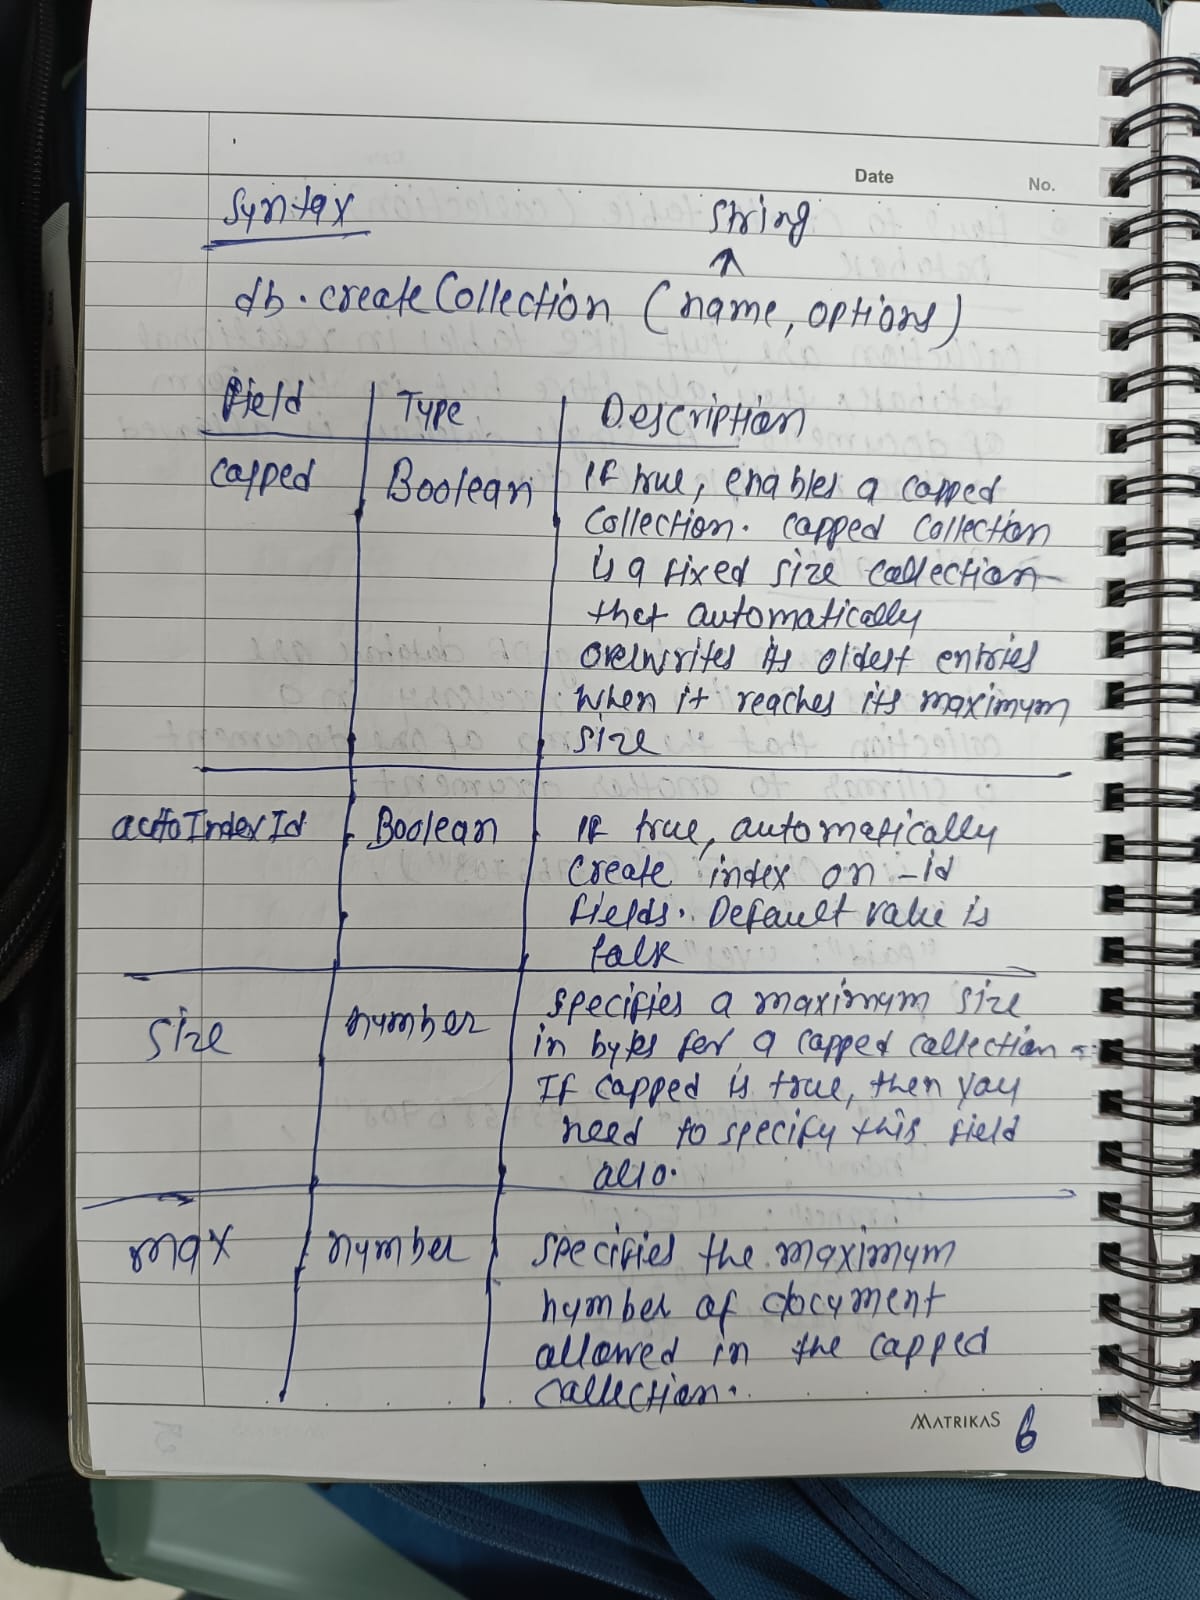 Date
No.
Syntax
String
↑
db.createCollection (name, options)
Field Type Description
capped Boolean If true, enables a capped
collection. capped collection
is a fixed size collection
that automatically
overwrites its oldest entries
when it reaches its maximum
size
autoIndexId Boolean If true, automatically
create index on -id
fields. Default value is
false
size number specifies a maximum size
in bytes for a capped collection -
If capped is true, then you
need to specify this field
also.
max number specifies the maximum
number of document
allowed in the capped
collection.
MATRIKAS 6